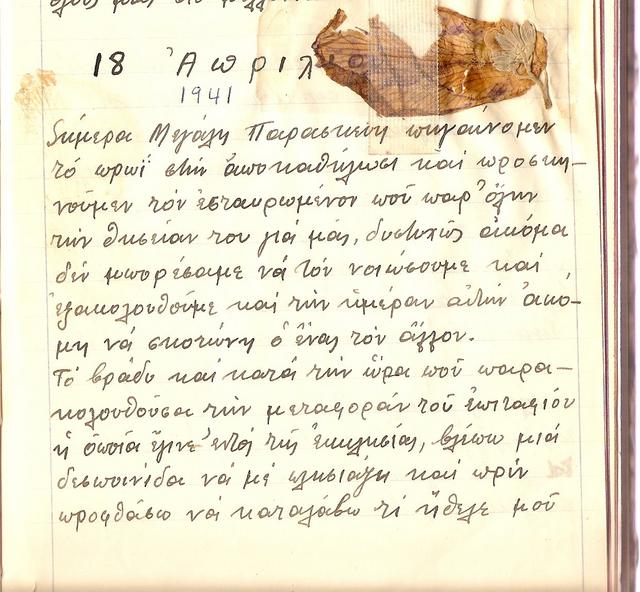 18 Ἀπριλίου
1941
Σήμερα Μεγάλη Παρασκευη πηγαίνομεν
τό πρωΐ στήν ἀποκαθήλωσι καί προσκυ-
νοῦμεν τόν ἐσταυρωμένον πού παρ' ὅλην
τήν θυσίαν του γιά μᾶς, δυστυχῶς ἀκόμα
δέν μπορέσαμε νά τόν νοιώσουμε καί
ἐξακολουθοῦμε καί τήν ἡμέραν αὐτήν ἀκό-
μη νά σκοτώνη ὁ ἕνας τόν ἄλλον.
Τό βράδυ καί κατά τήν ὥρα πού παρα-
κολουθοῦσα τήν μεταφοράν τοῦ ἐπιταφίου
ἡ ὁποία ἔγινε ἐντός τῆς ἐκκλησίας, βλέπω μιά
δεσποινίδα νά μέ πλησιάζη καί πρίν
προφθάσω νά καταλάβω τί ἤθελε μοῦ